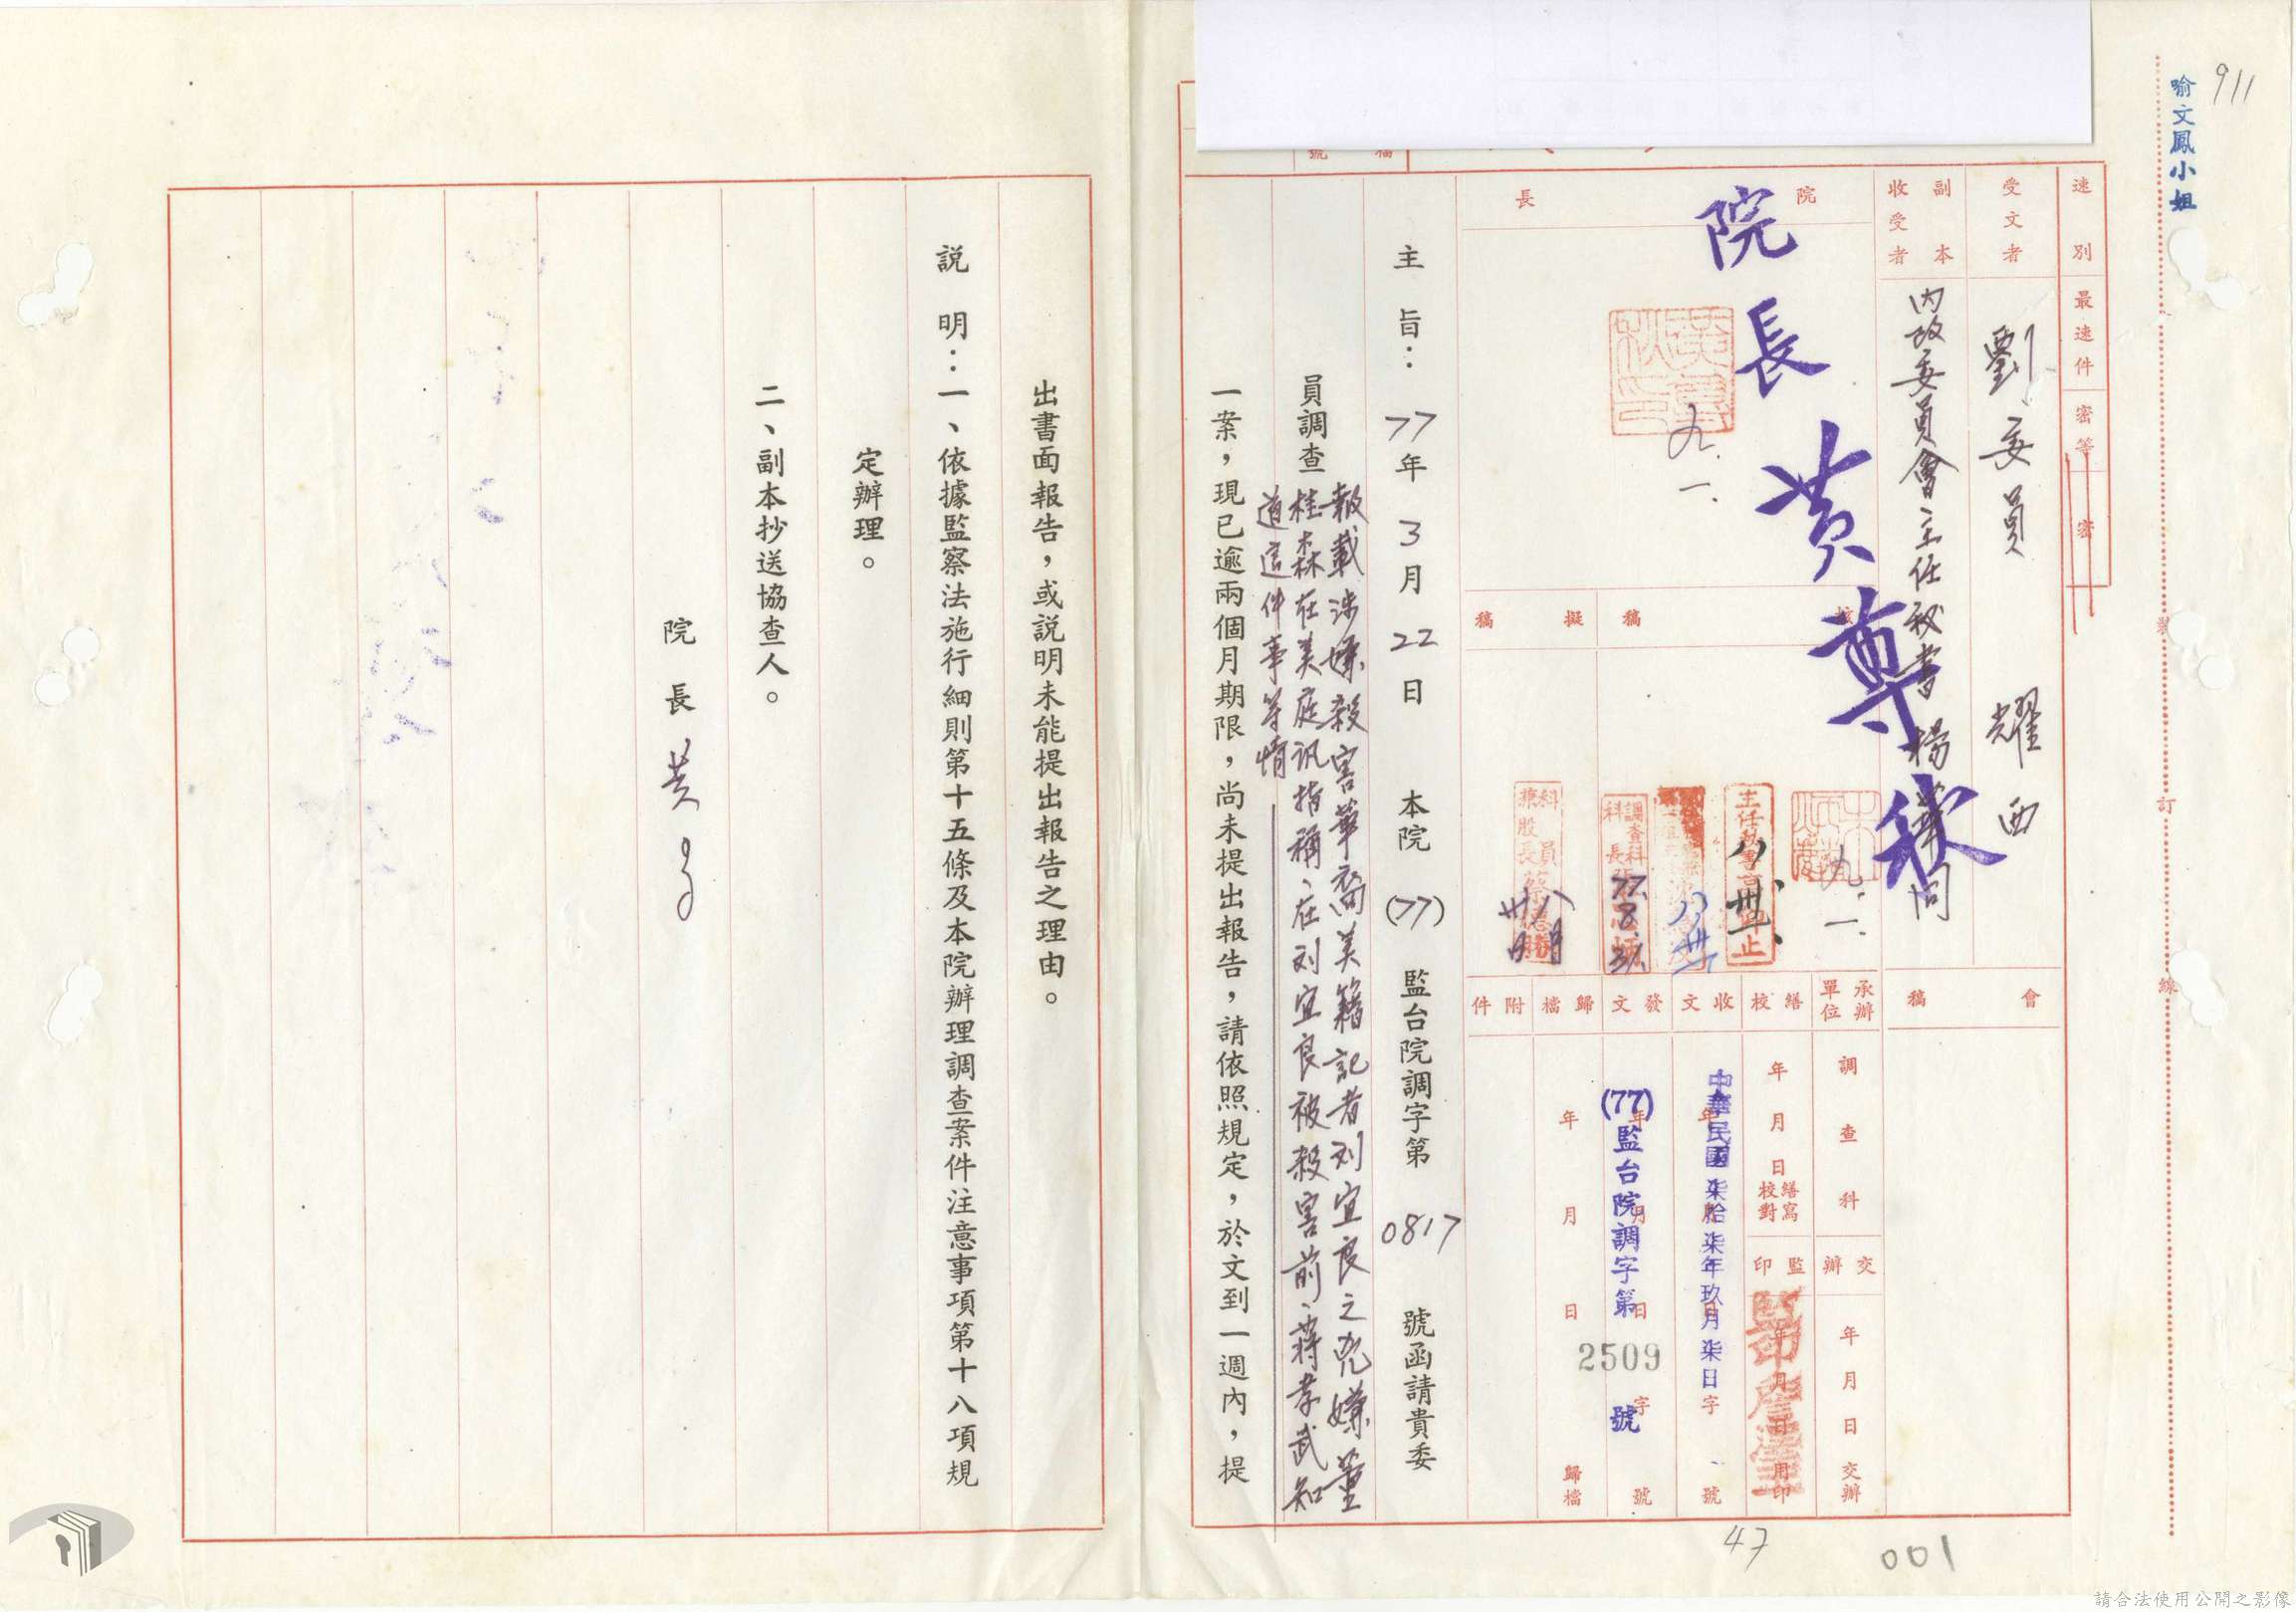 911
喻文鳳小姐
裝訂線
速別 最速件 密等 密
受文者 劉委員耀西
副本收受者 內政委員會主任秘書楊華同
會稿
院長
院長黃尊秋
九.一.
核稿 擬稿
主任秘書
調查科科長
77.8.31.
科員兼股長蔡德勝
八月卅日
八.卅一
九.一.
承辦單位 調查科
交辦 年月日交辦
繕校 年月日繕寫校對
監印 年月日用印
收文 年月日字號
中華民國柒拾柒年玖月柒日
發文 年月日字號
(77)監台院調字第2509號
歸檔 年月日歸檔
附件
檔號
主旨：77年3月22日本院(77)監台院調字第0817號函請貴委
員調查
報載涉嫌殺害華裔美籍記者刘宜良之兇嫌董
桂森在美庭訊指稱、在刘宜良被殺害前、蔣孝武知
道這件事等情
一案，現已逾兩個月期限，尚未提出報告，請依照規定，於文到一週內，提
出書面報告，或説明未能提出報告之理由。
説明：一、依據監察法施行細則第十五條及本院辦理調查案件注意事項第十八項規
定辦理。
二、副本抄送協查人。
院長黃
47
001
請合法使用公開之影像